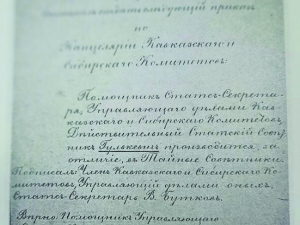 приказ
по
Канцеляріи Кавказскаго и
Сибирскаго Комитетовъ
Помощникъ Статсъ-Секрета-
ря, Управляющаго дѣлами Кав-
казскаго и Сибирскаго Комитетовъ,
Дѣйствительный Статскій Совѣт-
никъ Гулькевичъ производится, за
отличіе, въ Тайные Совѣтники.
Подписалъ: Членъ Кавказскаго и Сибирскаго Ко-
митетовъ, Управляющій дѣлами оныхъ,
Статсъ-Секретарь В. Бутковъ.
Вѣрно: Помощникъ Управляющаго